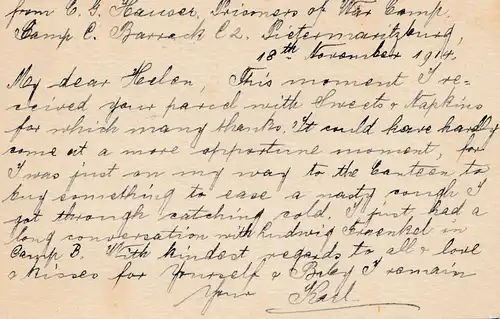 from C. G. Hauser, Prisoners of War Camp,
Camp C. Barrack C2. Pietermaritzburg,
18th November 1914.
My dear Helen, This moment I re-
ceived your parcel with Sweets & Napkins
for which many thanks. It could have hardly
come at a more opportune moment, for
I was just on my way to the Canteen to
buy something to ease a nasty cough I
got through catching cold. I just had a
long conversation with Ludwig Fraenkel in
Camp B. With kindest regards to all & love
& Kisses for Yourself & I remain
Your Karl.